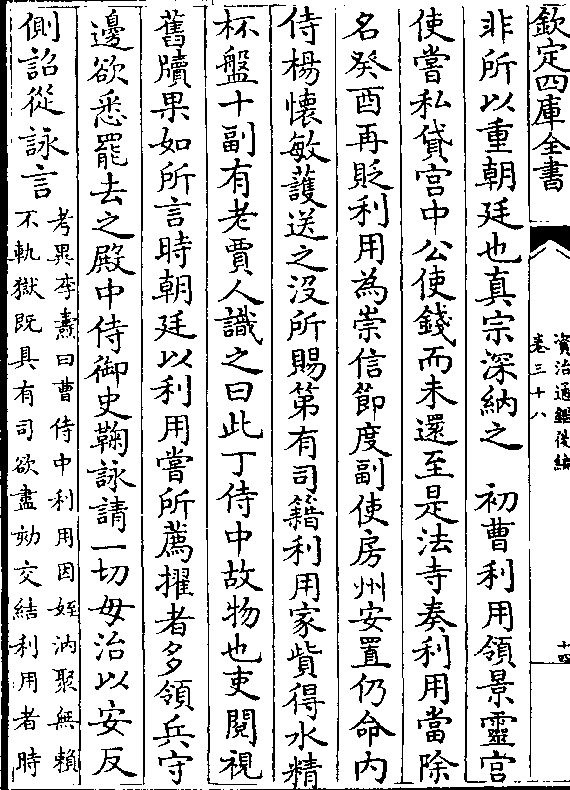 欽定四庫全書
資治通鑑後編
卷三十八
十四
非所以重朝廷也真宗深納之　初曹利用領景靈宮
使嘗私貸宮中公使錢而未還至是法寺奏利用當除
名癸酉再貶利用為崇信節度副使房州安置仍命內
侍楊懷敏護送之沒所賜第有司籍利用家貲得水精
杯盤十副有老賈人識之曰此丁侍中故物也吏閱視
舊牘果如所言時朝廷以利用嘗所薦擢者多領兵守
邊欲悉罷去之殿中侍御史鞠詠請一切毋治以安反
側詔從詠言
考異李燾曰曹侍中利用因姪汭聚無賴
不軌獄既具有司欲盡劾交結利用者時